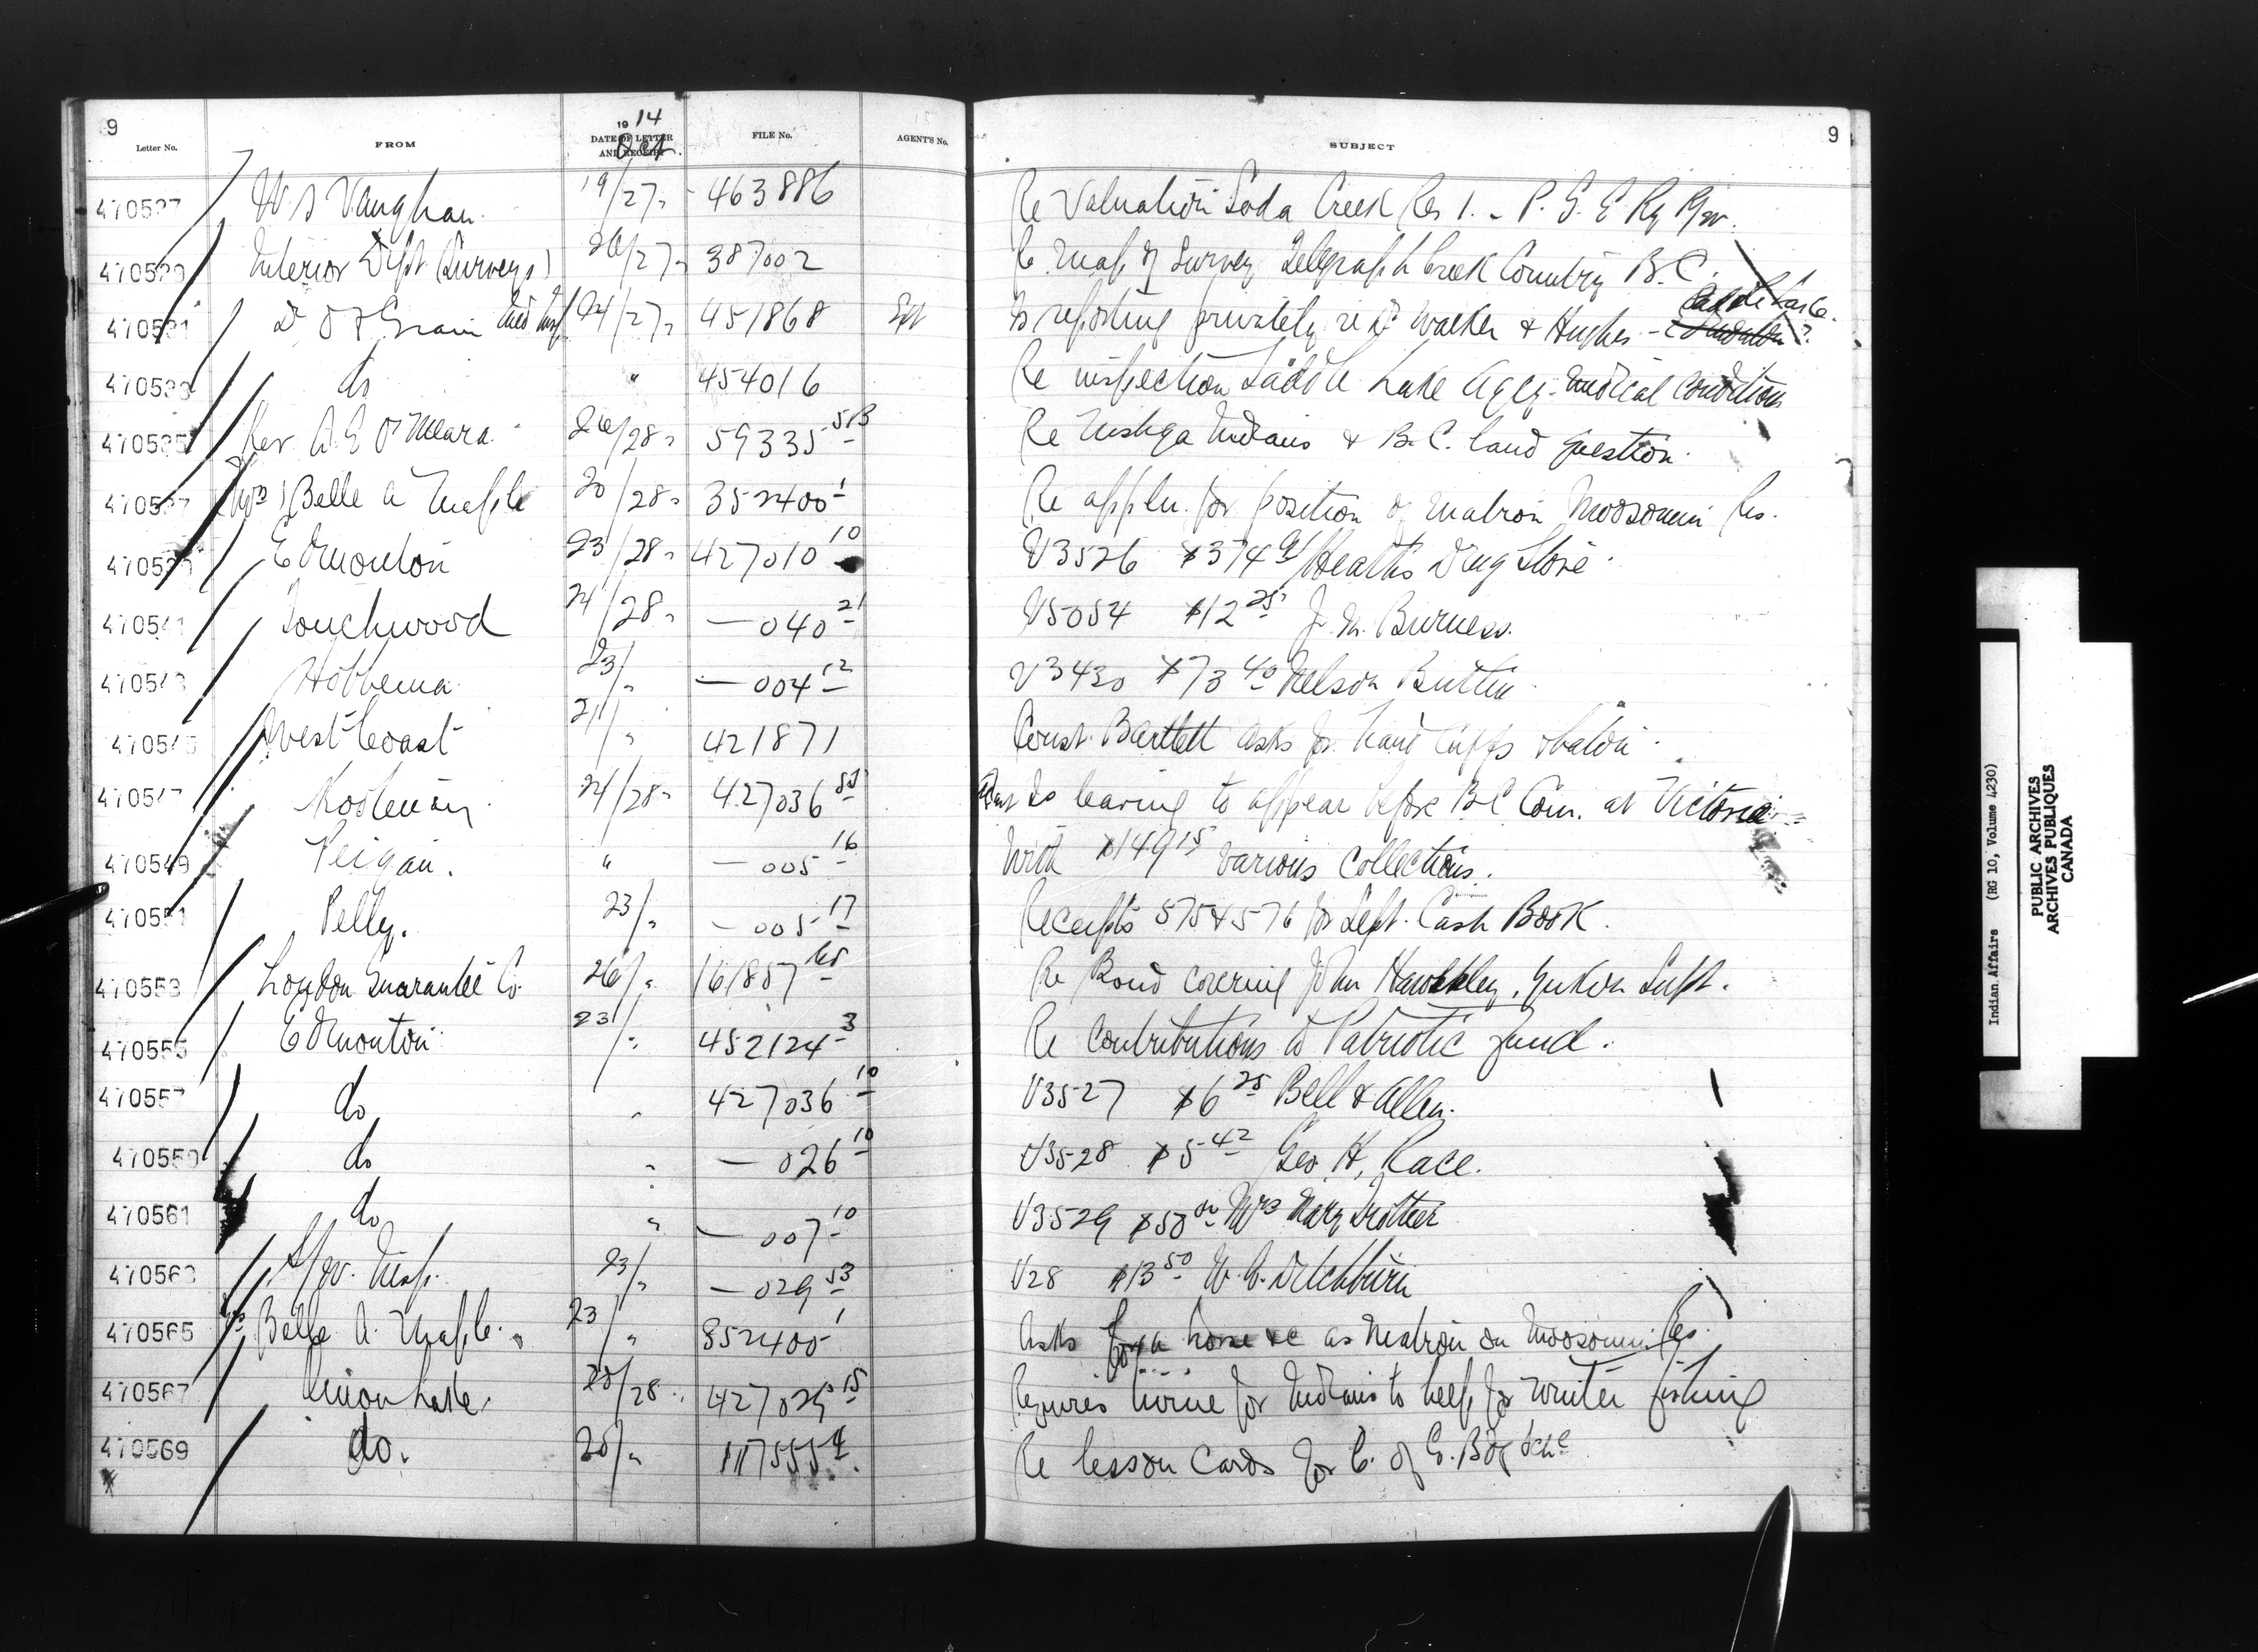 9
9
Letter No. FROM 1914 DATE OF LETTER AND RECEIPT Oct. FILE No. AGENT'S No. SUBJECT
470527 W S Vaughan 19/27 463886 Re Valuation Soda Creek Res 1. - P. G. E. Ry R/w.
470529 Interior Dept (Surveys) 26/27 387002 Re Map of Survey Telegraph Creek Country B.C.
470531 D O F Grain Med Insp 24/27 451868 Is reporting privately re Walker & Hughes - Saddle Lake.
470533 do " 454016 Re inspection Saddle Lake Agcy - medical conditions
470535 Rev. A E O'Meara 26/28 59335 Re Nishga Indians & B.C. land question.
470537 Mrs Belle A Maple 20/28 352400 1 Re appln. for position of Matron Moosomin Res.
470539 Edmonton 23/28 427010 10 V3526 $374 Heath's Drug Store
470541 Touchwood 24/28 — 040 21 V5054 $12 25 J. M. Burness.
470543 Hobbema 23/" — 004 12 V3430 $73 40 Nelson Buttin
470545 West Coast 21/" 421871 Const. Bartlett asks for hand cuffs & baton
470547 Kootenay 24/28 427036 Agent Is leaving to appear before B C Com. at Victoria
470549 Peigan. " — 005 16 With $149 15 various collections.
470551 Pelly. 23/" — 005 17 Receipts 575 & 576 for Dept. Cash Book.
470553 London Guarantee Co. 26/" 161857 Re Bond covering John Hawksley, Yukon Supt.
470555 Edmonton 23/" 452124 3 Re Contributions to Patriotic fund.
470557 do " 427036 10 V3527 $6 25 Bell & Allen.
470559 do " — 026 10 V3528 $5 42 Geo. H. Race.
470561 do " — 007 10 V3529 $50 00 Mrs Mary
470563 S/W. Insp. 23/" — 029 53 V28 $13 50 W. E. Ditchburn
470565 Mrs Belle A. Maple. 23/" 352400 1 Asks for a horse &c as Matron on Moosomin Res.
470567 Onion Lake. 20/28 427029 15 Requires twine for Indians to help for winter fishing
470569 do. 20/" 117555 4 Re lesson cards for C. of E. Bdg Schl
Indian Affairs (RG 10, Volume 4230)
PUBLIC ARCHIVES
ARCHIVES PUBLIQUES
CANADA